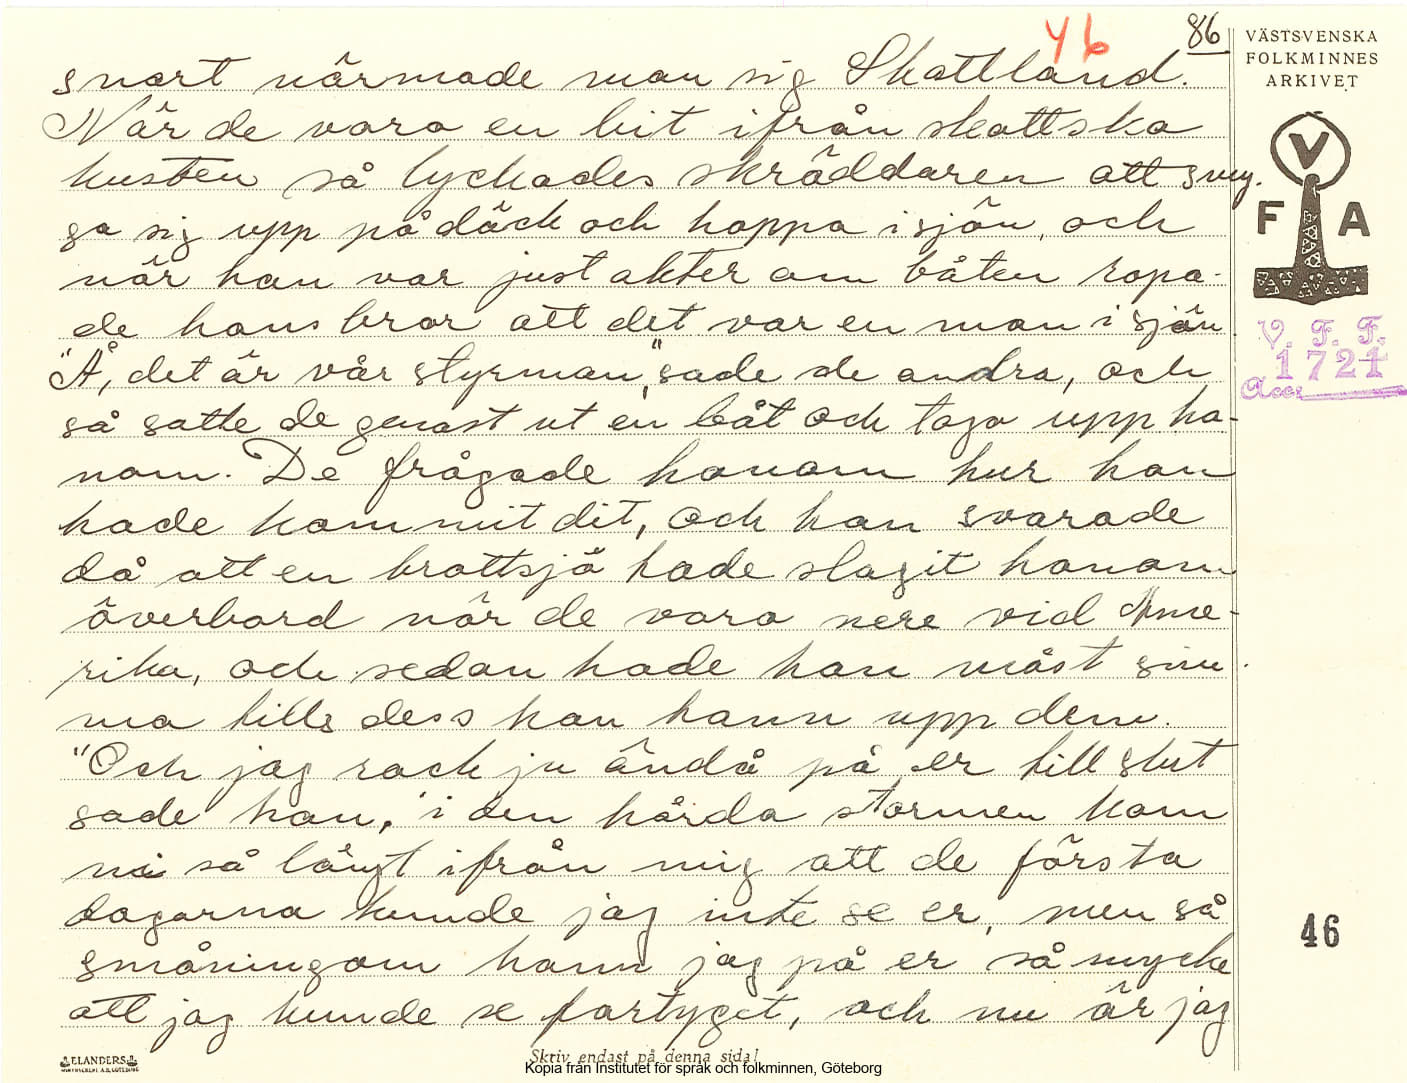 46
86
VÄSTSVENSKA
FOLKMINNES
ARKIVET
V
F A
V. F. F.
1721
Acc.
snart närmade man sig Skottland.
När de voro en bit ifrån skottska
kusten så lyckades skräddaren att smy-
ga sig upp på däck och hoppa i sjön, och
när han var just akter om båten ropa-
de hans bror att det var en man i sjön.
"Å, det är vår styrman," sade de andra, och
så satte de genast ut en båt och togo upp ho-
nom. De frågade honom hur han
hade kommit dit, och han svarade
då att en brottsjö hade slagit honom
överbord när de voro nere vid Ame-
rika, och sedan hade han måst sim-
ma tills dess han hann upp dem.
"Och jag rack ju ändå på er till slut
sade han, i den hårda stormen kom
ni så långt ifrån mig att de första
dagarna kunde jag inte se er, men så
småningom hann jag på er så mycke
att jag kunde se fartyget, och nu är jag
46
ELANDERS
Skriv endast på denna sida!
Kopia från Institutet för språk och folkminnen, Göteborg